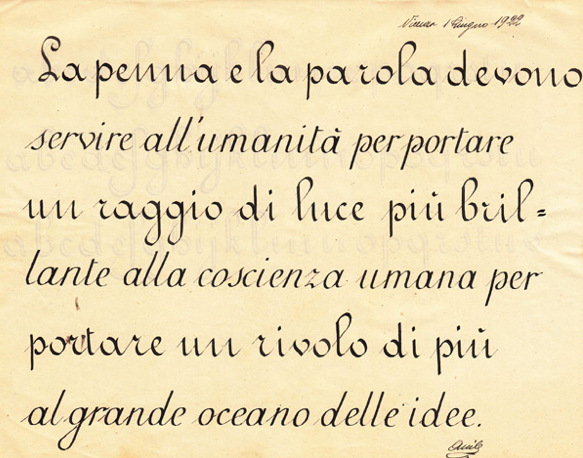 1 Giugno 1922
La penna e la parola devono
servire all'umanità per portare
un raggio di luce più bril=
lante alla coscienza umana per
portare un rivolo di più
al grande oceano delle idee.